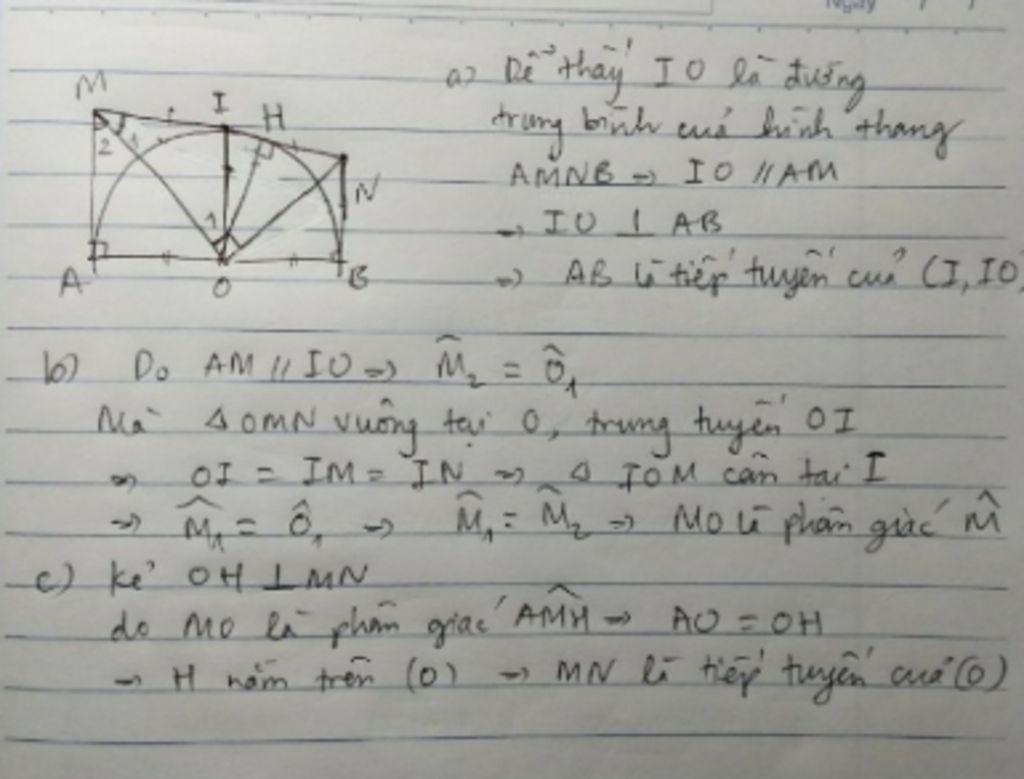 Ngày
a) Dễ thấy IO là đường
trung bình của hình thang
AMNB => IO // AM
→ IO ⊥ AB
=> AB là tiếp tuyến của (I, IO)
M
I
H
1
2
N
1
A
O
B
b) Do AM // IO => M̂₂ = Ô₁
Mà Δ OMN vuông tại O, trung tuyến OI
=> OI = IM = IN => Δ IOM cân tại I
=> M̂₁ = Ô₁ => M̂₁ = M̂₂ => MO là phân giác M̂
c) Kẻ OH ⊥ MN
do MO là phân giác AM̂H => AO = OH
→ H nằm trên (O) → MN là tiếp tuyến của (O)